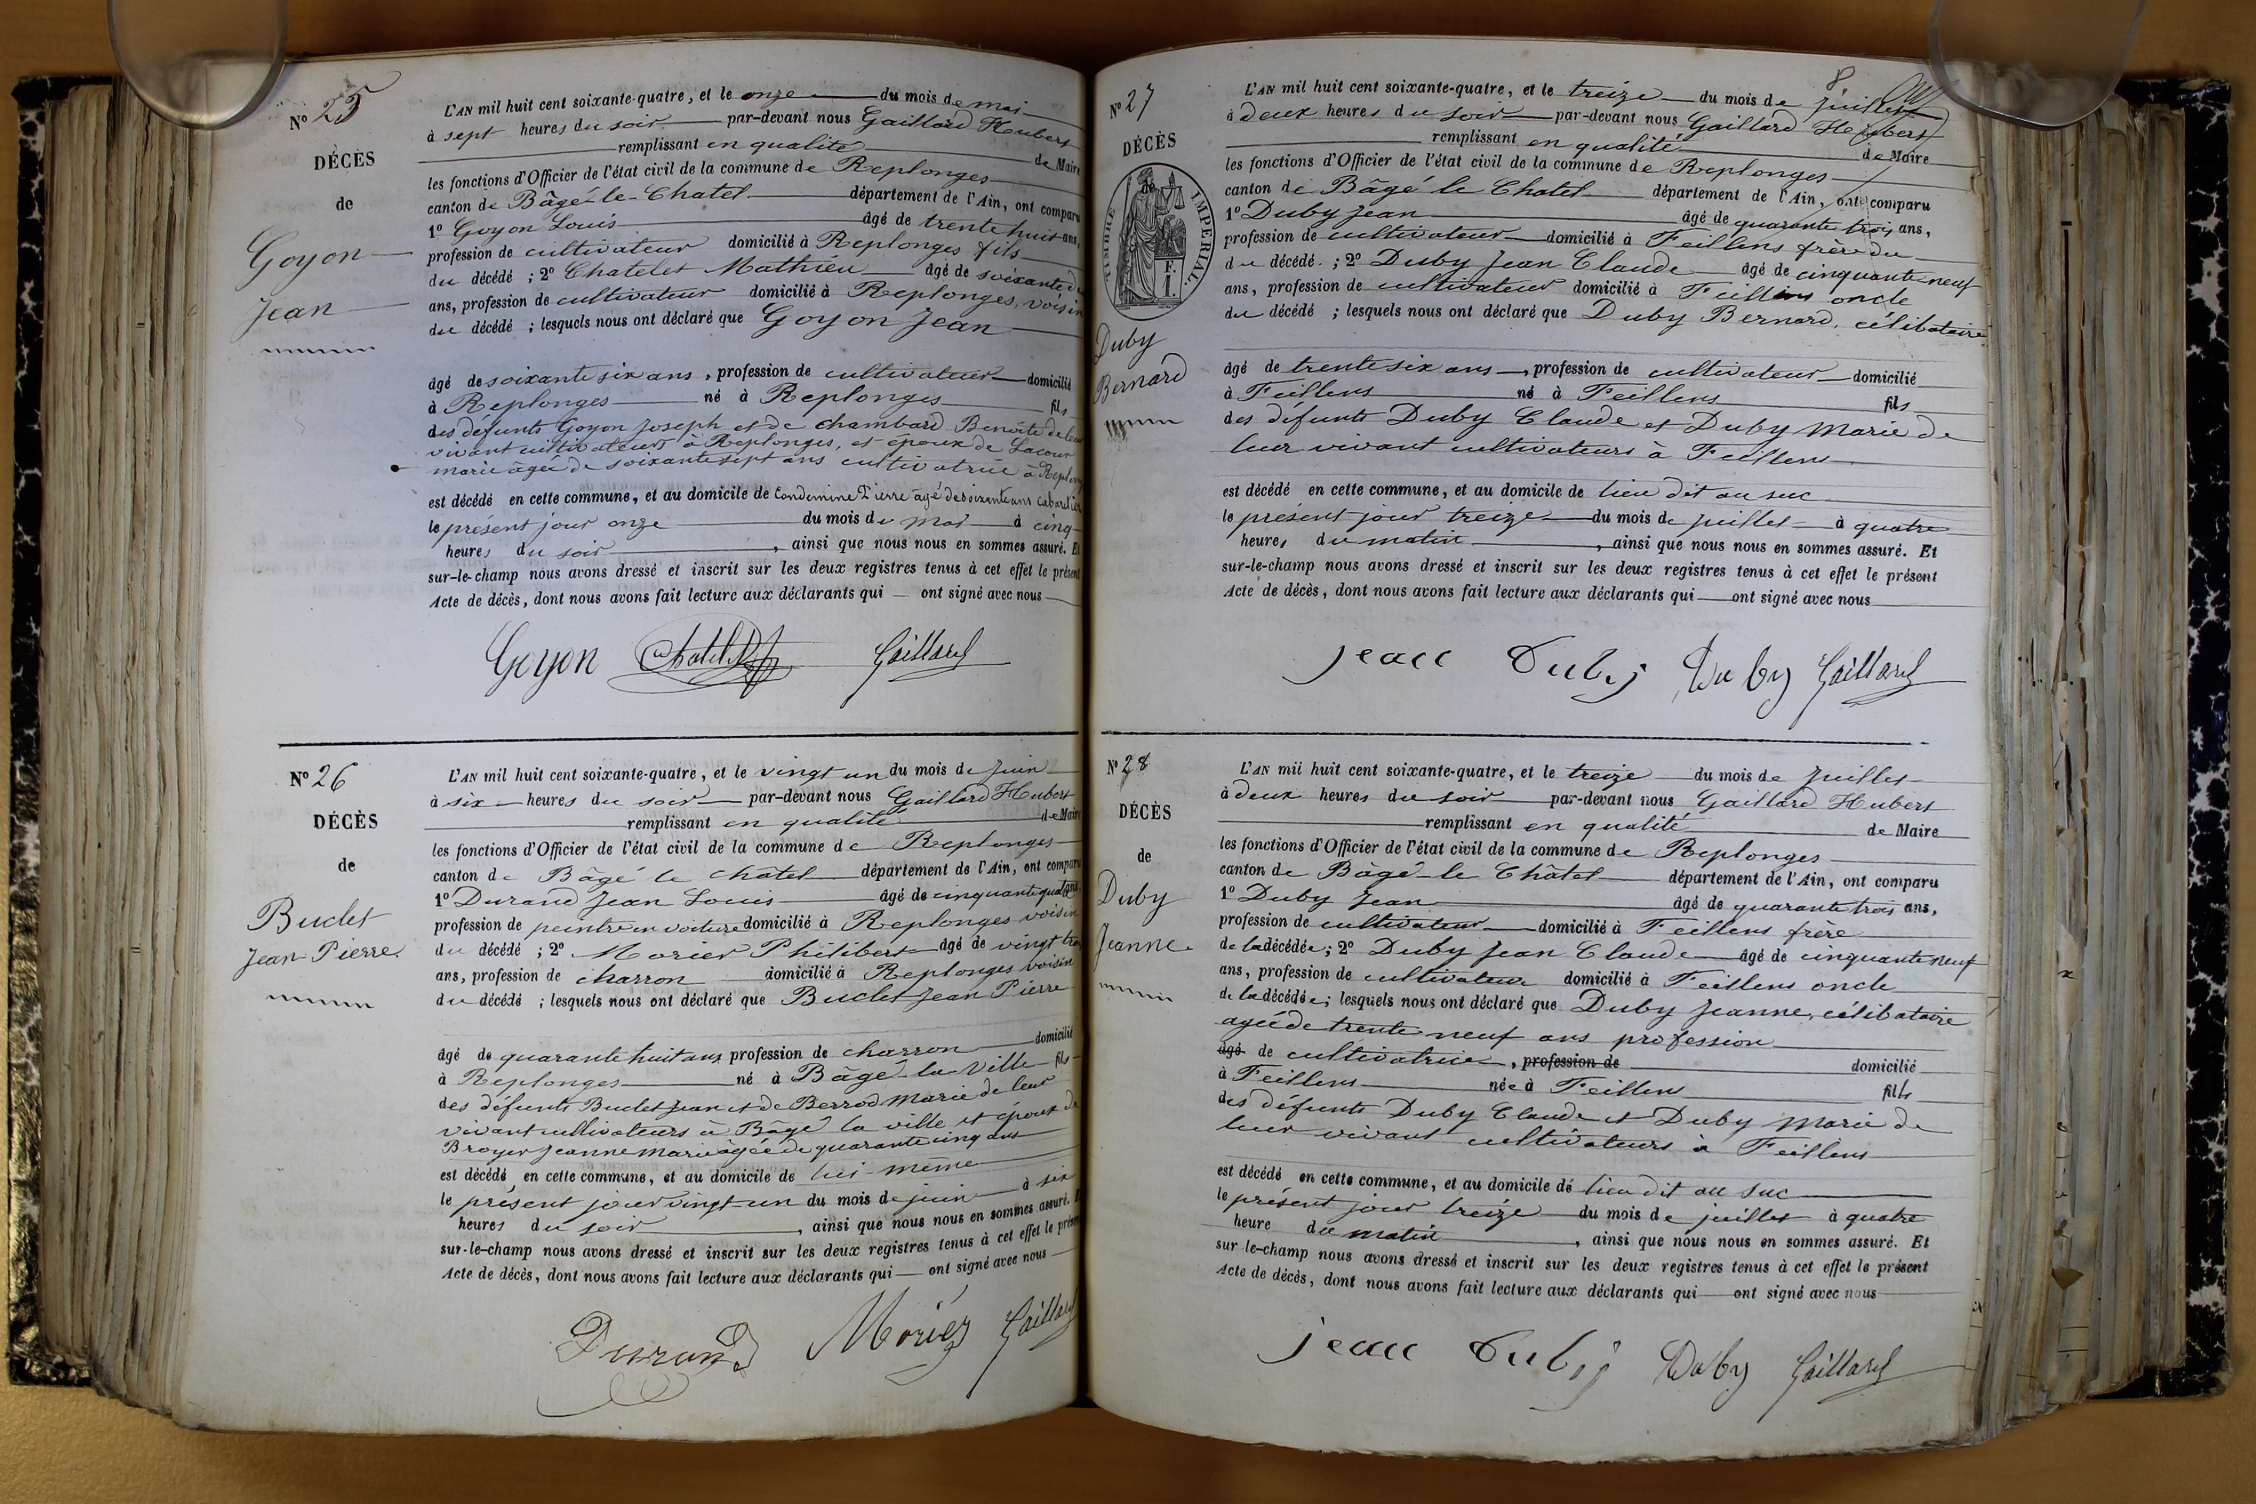 Nº 25
DÉCÈS
de
Goyon
Jean
L'AN mil huit cent soixante-quatre, et le onze du mois de mai
à sept heures du soir par-devant nous Gaillard Hubert
remplissant en qualité de Maire
les fonctions d'Officier de l'état civil de la commune de Replonges
canton de Bâgé-le-Chatel département de l'Ain, ont comparu
1º Goyon Louis âgé de trente huit ans,
profession de cultivateur domicilié à Replonges fils
du décédé ; 2º Chatelet Mathieu âgé de soixante
ans, profession de cultivateur domicilié à Replonges, voisin
du décédé ; lesquels nous ont déclaré que Goyon Jean
âgé de soixante six ans, profession de cultivateur domicilié
à Replonges né à Replonges fils
des defunts Goyon Joseph et de Chambard Benoîte de leur
vivant cultivateurs à Replonges, et époux de Lacour
marie âgée de soixante sept ans cultivatrice à Replong
est décédé en cette commune, et au domicile de Condemine Pierre âgé de soixante ans Cabaretier
le présent jour onze du mois de mai à cinq
heures du soir, ainsi que nous nous en sommes assuré. Et
sur-le-champ nous avons dressé et inscrit sur les deux registres tenus à cet effet le présent
Acte de décès, dont nous avons fait lecture aux déclarants qui ont signé avec nous
Goyon Chatelet Gaillard
Nº 26
DÉCÈS
de
Buclet
Jean-Pierre.
L'AN mil huit cent soixante-quatre, et le vingt un du mois de Juin
à six heures du soir par-devant nous Gaillard Hubert
remplissant en qualité de Maire
les fonctions d'Officier de l'état civil de la commune de Replonges
canton de Bâgé le châtel département de l'Ain, ont comparu
1º Durand Jean Louis âgé de cinquante quatre ans,
profession de peintre en voiture domicilié à Replonges voisin
du décédé ; 2º Morier Philibert âgé de vingt trois
ans, profession de charron domicilié à Replonges voisin
du décédé ; lesquels nous ont déclaré que Buclet Jean Pierre
âgé de quarante huit ans profession de charron domicilié
à Replonges né à Bâgé la Ville fils
des défunts Buclet Jean et de Berrod Marie de leur
vivant cultivateurs à Bâgé la ville et époux de
Broyer Jeanne Marie âgée de quarante cinq ans
est décédé en cette commune, et au domicile de lui-même
le présent jour vingt-un du mois de juin à six
heures du soir, ainsi que nous nous en sommes assuré. E
sur-le-champ nous avons dressé et inscrit sur les deux registres tenus à cet effet le présen
Acte de décès, dont nous avons fait lecture aux déclarants qui ont signé avec nous
Durand Moriér Gaillard
8
Nº 27
DÉCÈS
de
TIMBRE IMPÉRIAL.
F.
1.
Duby
Bernard
L'AN mil huit cent soixante-quatre, et le treize du mois de juillet
à deux heures du soir par-devant nous Gaillard Hubert
remplissant en qualité de Maire
les fonctions d'Officier de l'état civil de la commune de Replonges
canton de Bâgé le Chatel département de l'Ain, ont comparu
1º Duby Jean âgé de quarante trois ans,
profession de cultivateur domicilié à Feillens frère du
du décédé ; 2º Duby Jean Claude âgé de cinquante neuf
ans, profession de cultivateur domicilié à Feillens oncle
du décédé ; lesquels nous ont déclaré que Duby Bernard, célibataire
âgé de trente six ans, profession de cultivateur domicilié
à Feillens né à Feillens fils
des défunts Duby Claude et Duby Marie de
leur vivant cultivateurs à Feillens
est décédé en cette commune, et au domicile de lieu dit au suc
le présent jour treize du mois de juillet à quatre
heures du matin, ainsi que nous nous en sommes assuré. Et
sur-le-champ nous avons dressé et inscrit sur les deux registres tenus à cet effet le présent
Acte de décès, dont nous avons fait lecture aux déclarants qui ont signé avec nous
jean Duby Duby Gaillard
Nº 28
DÉCÈS
de
Duby
Jeanne.
L'AN mil huit cent soixante-quatre, et le treize du mois de Juillet
à deux heures du soir par-devant nous Gaillard Hubert
remplissant en qualité de Maire
les fonctions d'Officier de l'état civil de la commune de Replonges
canton de Bâgé-le Châtel département de l'Ain, ont comparu
1º Duby Jean âgé de quarante trois ans,
profession de cultivateur domicilié à Feillens frère
de la décédée ; 2º Duby Jean Claude âgé de cinquante neuf
ans, profession de cultivateur domicilié à Feillens oncle
de la décédée ; lesquels nous ont déclaré que Duby Jeanne, célibataire
agée de trente neuf ans profession
âgé de cultivatrice, profession de domicilié
à Feillens née à Feillens fille
des défunts Duby Claude et Duby Marie de
leur vivant cultivateurs à Feillens
est décédé en cette commune, et au domicile de lieu dit au suc
le présent jour treize du mois de juillet à quatre
heure du matin, ainsi que nous nous en sommes assuré. Et
sur-le-champ nous avons dressé et inscrit sur les deux registres tenus à cet effet le présent
Acte de décès, dont nous avons fait lecture aux déclarants qui ont signé avec nous
jean Duby Duby Gaillard